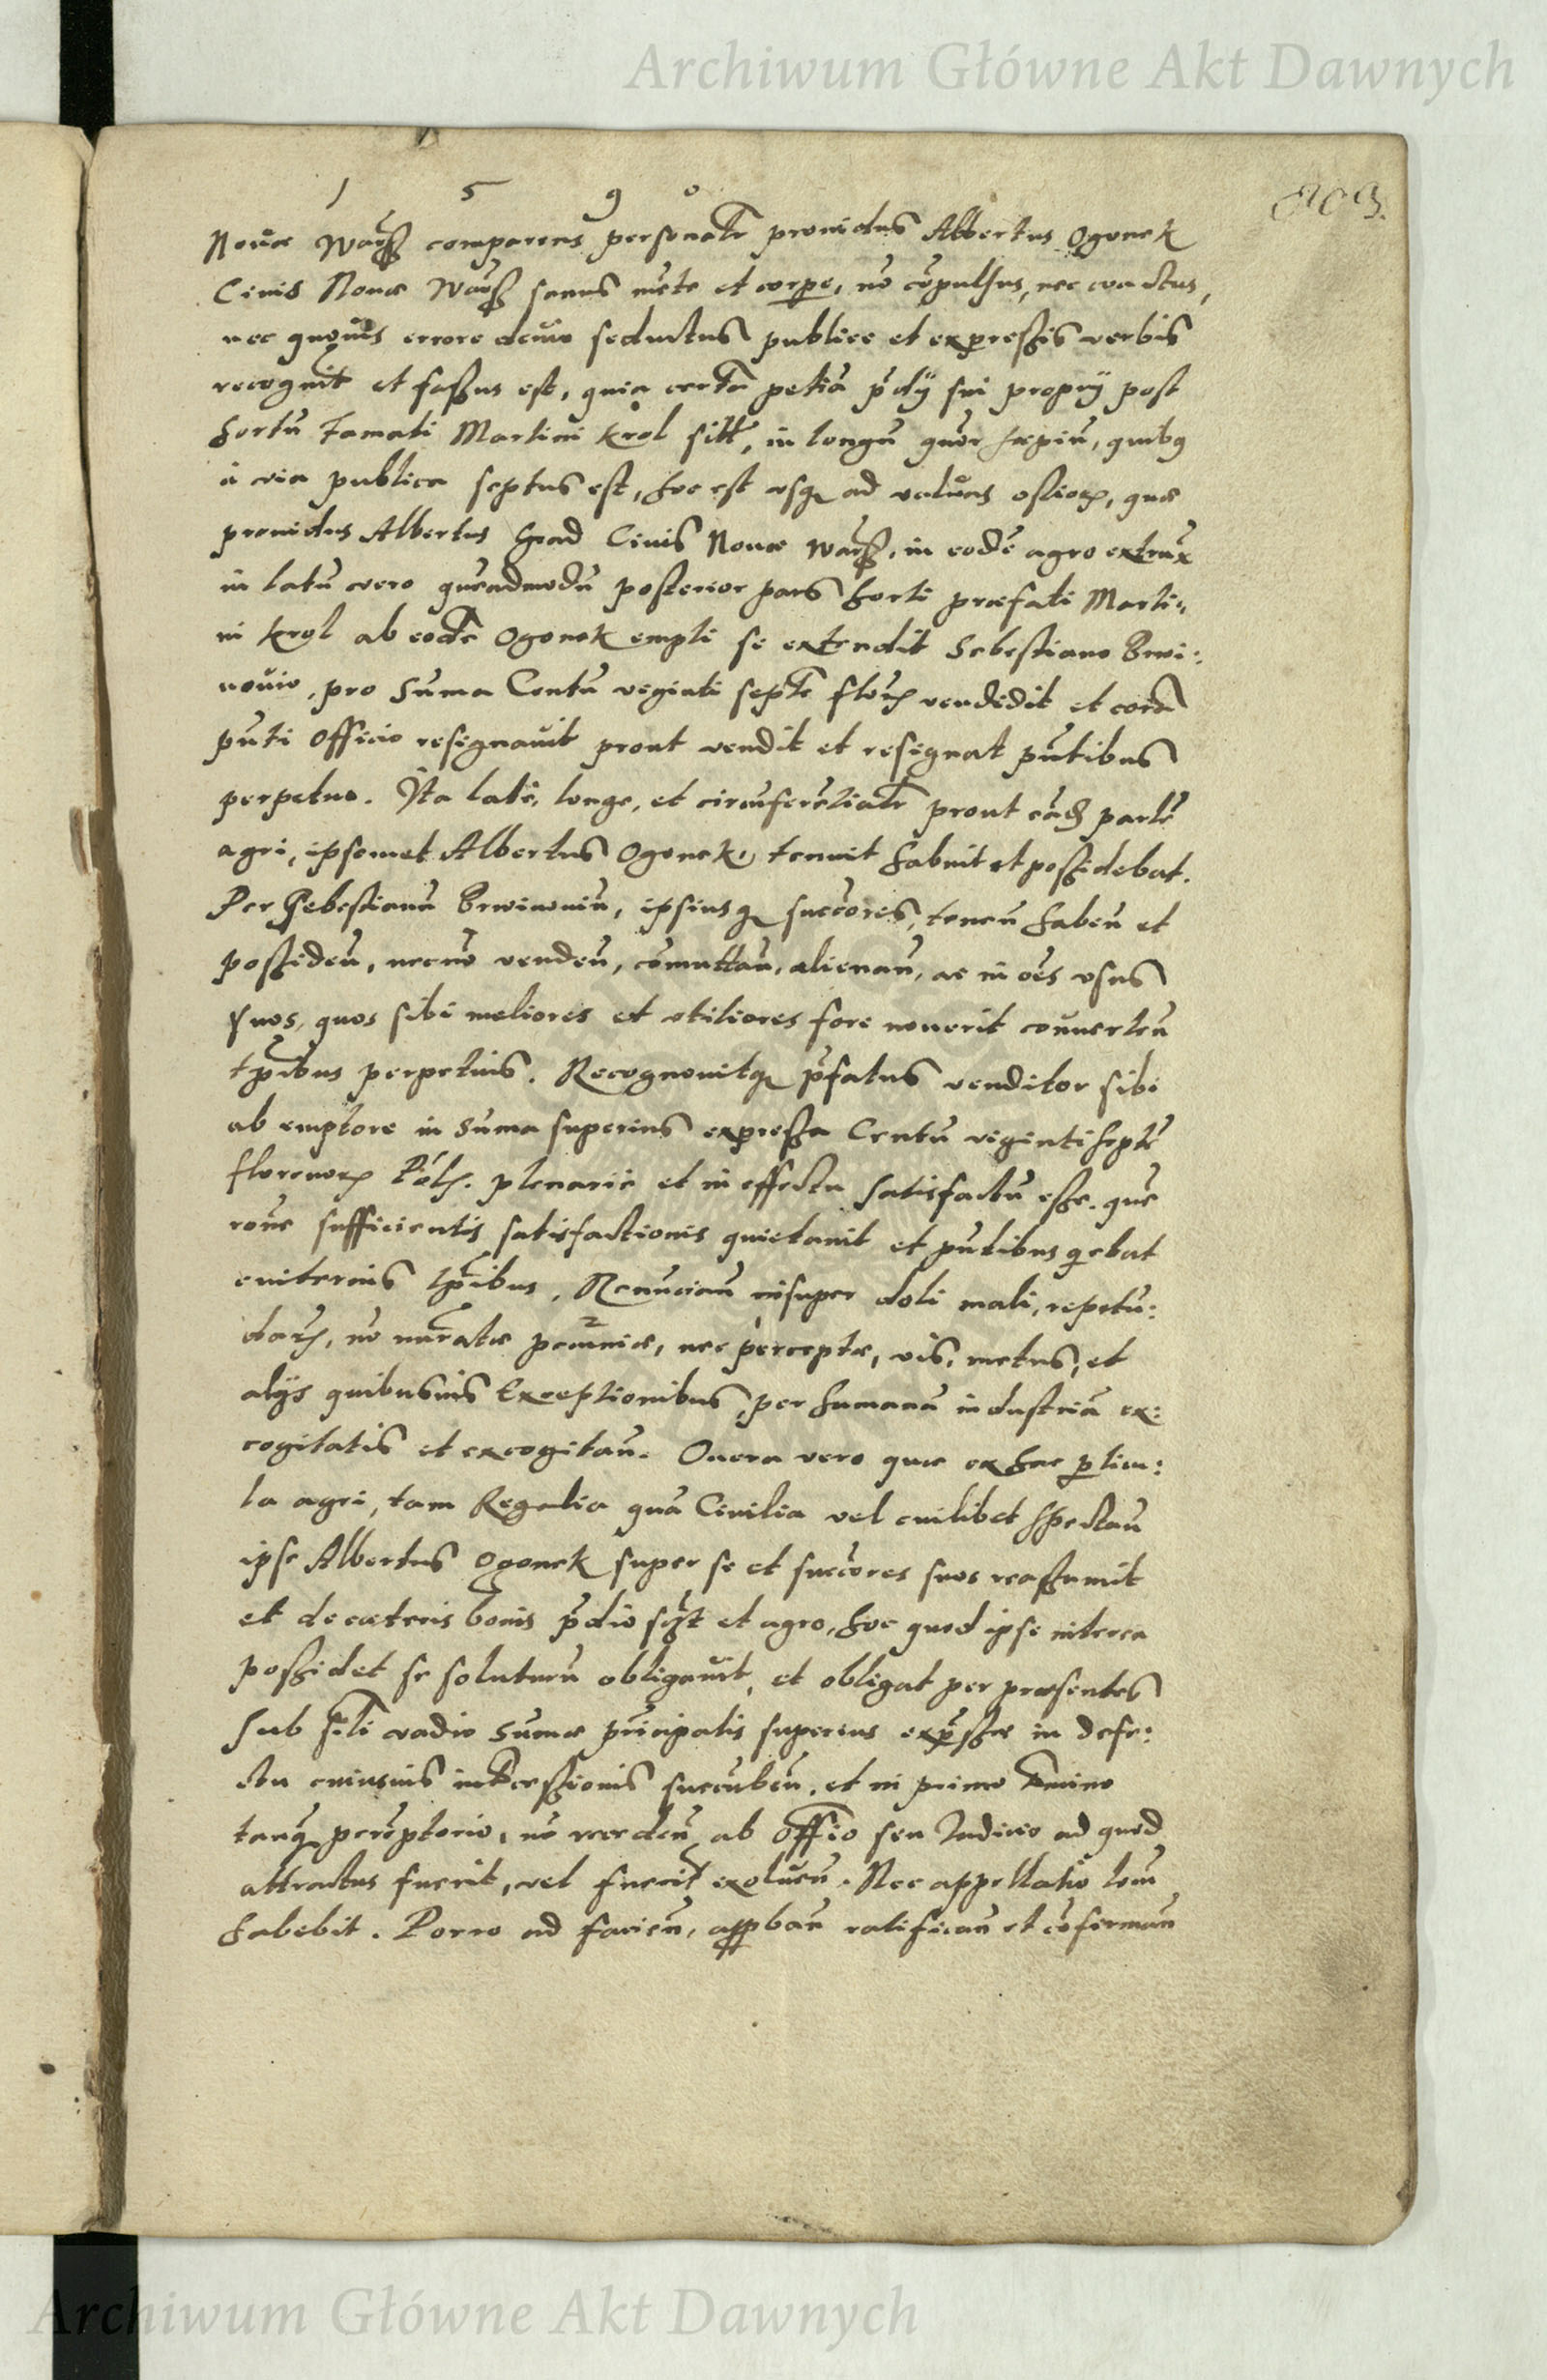 Archiwum Główne Akt Dawnych
1 5 9 0
803.
Novæ Warß comparens personaltr providus Albertus Ogonek
Civis Novæ Warß sanus mēte et corpe, nō cōpulsus, nec coactus,
nec quovis errore devio seductus publice et expressis verbis
recognovit et fassus est, quia certā petiā p̄dÿ sui proprÿ post
hortū Famati Martini Krol sitt, in longū
à via publica septus est, hoc est usq ad valvas ostiorū, quæ
providus Albertus Civis Novæ Warß, in eodē agro extrux
in latū vero quēadmodū posterior pars horti præfati Marti:
ni Krol ab eodē Ogonek empti se extendit Sebestiano Brwi:
novio, pro Suma Centū viginti septē florū vendidit et corā
pn̄ti Officio resignavit prout vendit et resignat pn̄tibus
perpetuo. Ita late, longe, et circūferētialtr prout eād partē
agri, ipsemet Albertus Ogonek, tenuit habuit et possidebat.
Per Sebestianū Brwinoviū, ipsiusq succōres, tenēn habēn et
possiden, necnō venden, comuttan, alienan, ac in ōes usus
suos, quos sibi meliores et utiliores fore noverit converten
tp̄ribus perpetuis. Recognovitq p̄fatus venditor sibi
ab emptore in Suma superius expressa Centū viginti septē
florenorū Polł. plenarie et in effectu satisfactū esse. quē
rōne sufficientis satisfactionis quietavit et pn̄tibus qetat
eviternis tp̄ribus. Renuncian insuper doli mali, repetū:
darū, nō numratæ pecuniæ, nec perceptæ, vis, metus, et
alÿs quibusvis Exceptionibus, per humanā industriā ex:
cogitatis et excogitan. Onera vero quæ ex hac pticu:
la agri, tam Regalia quā Civilia vel cuilibet spectan
ipse Albertus Ogonek super se et succōres suos reassumit
et de cæteris bonis p̄dio et agro, hoc quod ipse interea
possidet se soluturū obligavit, et obligat per præsentes
Sub sīli vadio Sumæ principalis superius exp̄ssæ in defe:
ctu cuiusvis intercessionis succūben. et in primo tmino
tanq perēptorio, nō receden ab offio seu Iudicio ad quod
attractus fuerit, vel fuerint exolven. Nec appellatio locū
habebit. Porro ad facien, appban ratifican et cōfirman
Archiwum Główne Akt Dawnych